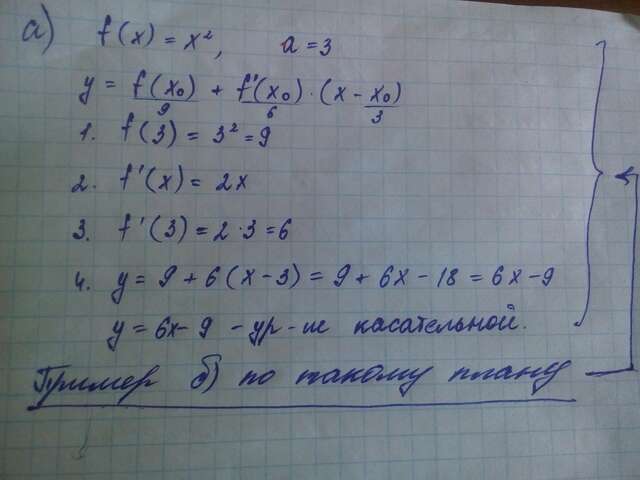 а) f(x) = x², a = 3
y = f(x₀) + f'(x₀) · (x - x₀)
9 6 3
1. f(3) = 3² = 9
2. f'(x) = 2x
3. f'(3) = 2·3 = 6
4. y = 9 + 6(x - 3) = 9 + 6x - 18 = 6x - 9
y = 6x - 9 - ур-ие касательной.
Пример б) по такому плану